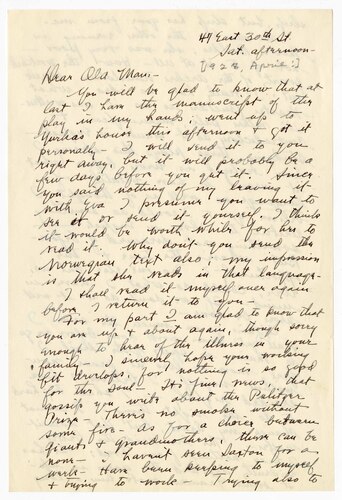 44 East 30th St
Sat. afternoon-
[1928, April?]
Dear Old Man-
You will be glad to know that at
last I have the manuscript of the
play in my hands, went up to
house this afternoon & got it
personally - I will send it to you
right away, but it will probably be a
few days before you get it. Since
you said nothing of my leaving it
with Eva I presume you want to
see it or send it yourself. I think
it would be worth while for her to
read it. Why don't you send the
Norwegian text also; my impression
is that she reads in that language-
I shall read it myself once again
before I return it to you-
For my part I am glad to know that
you are up & about again, though sorry
enough to hear of the illness in your
family- I sincerely hope your writing
fit develops, for nothing is so good
for the soul- It's fine news, that
gossip you write about the Pulitzer
Prize - There's no smoke without
some fire- As for a choice between
giants & grandmothers, there can be
none - I haven't seen Saxton for a
week - Have been keeping to myself
& trying to work - Trying also to